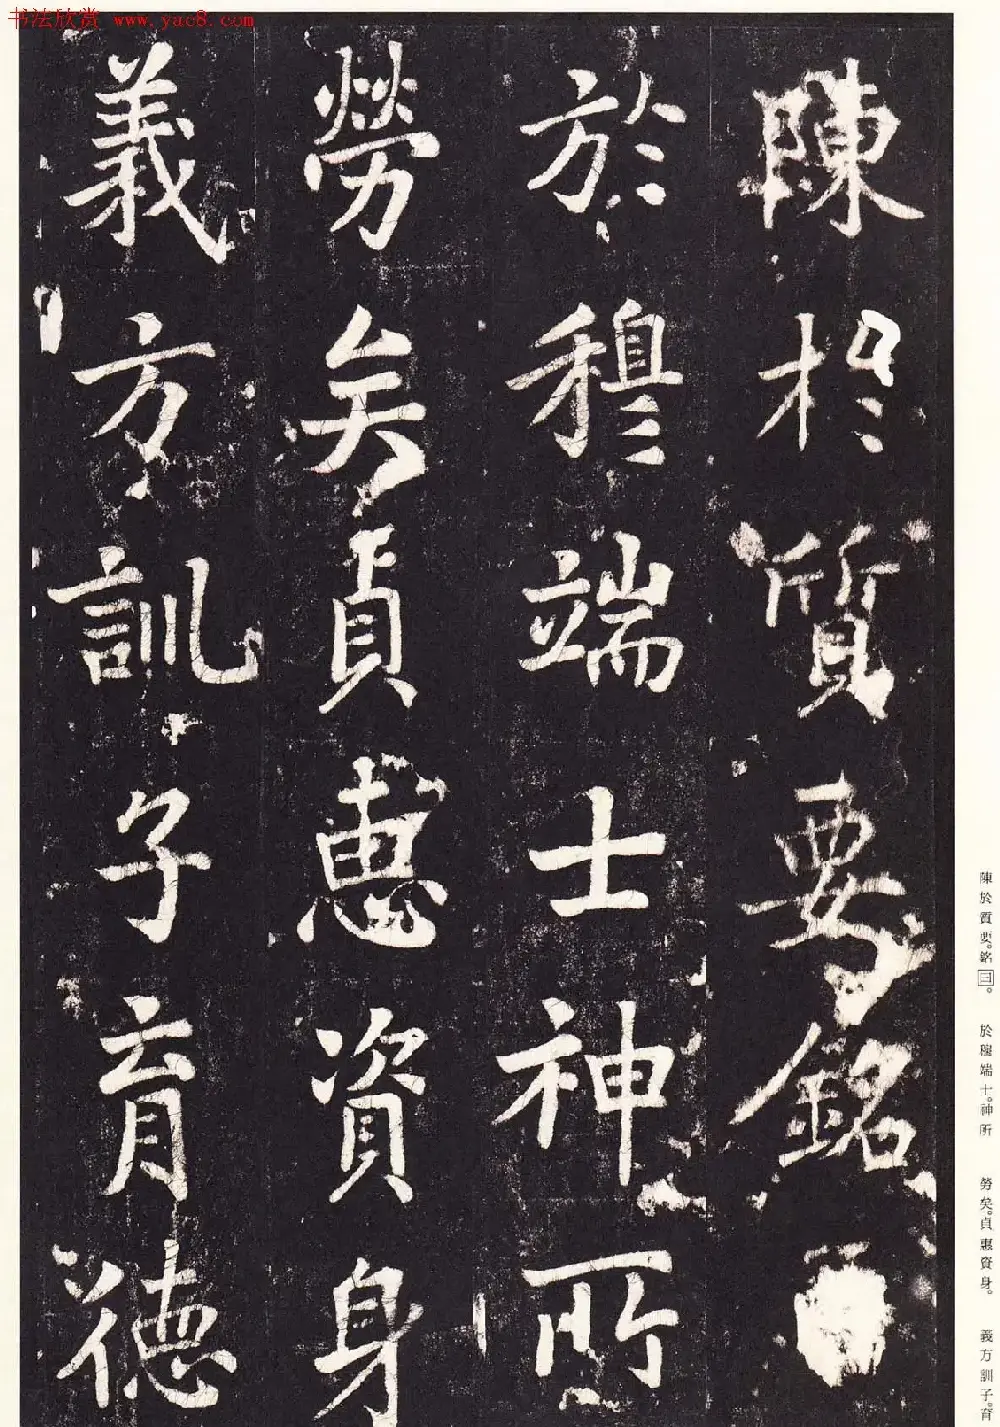 书法欣赏 www.yac8.com
陳於質要銘
於穆端士神所
勞矣貞惠資身
義方訓子育德
陳於質要。銘曰。 於穆端士。神所 勞矣。貞惠資身。 義方訓子。育